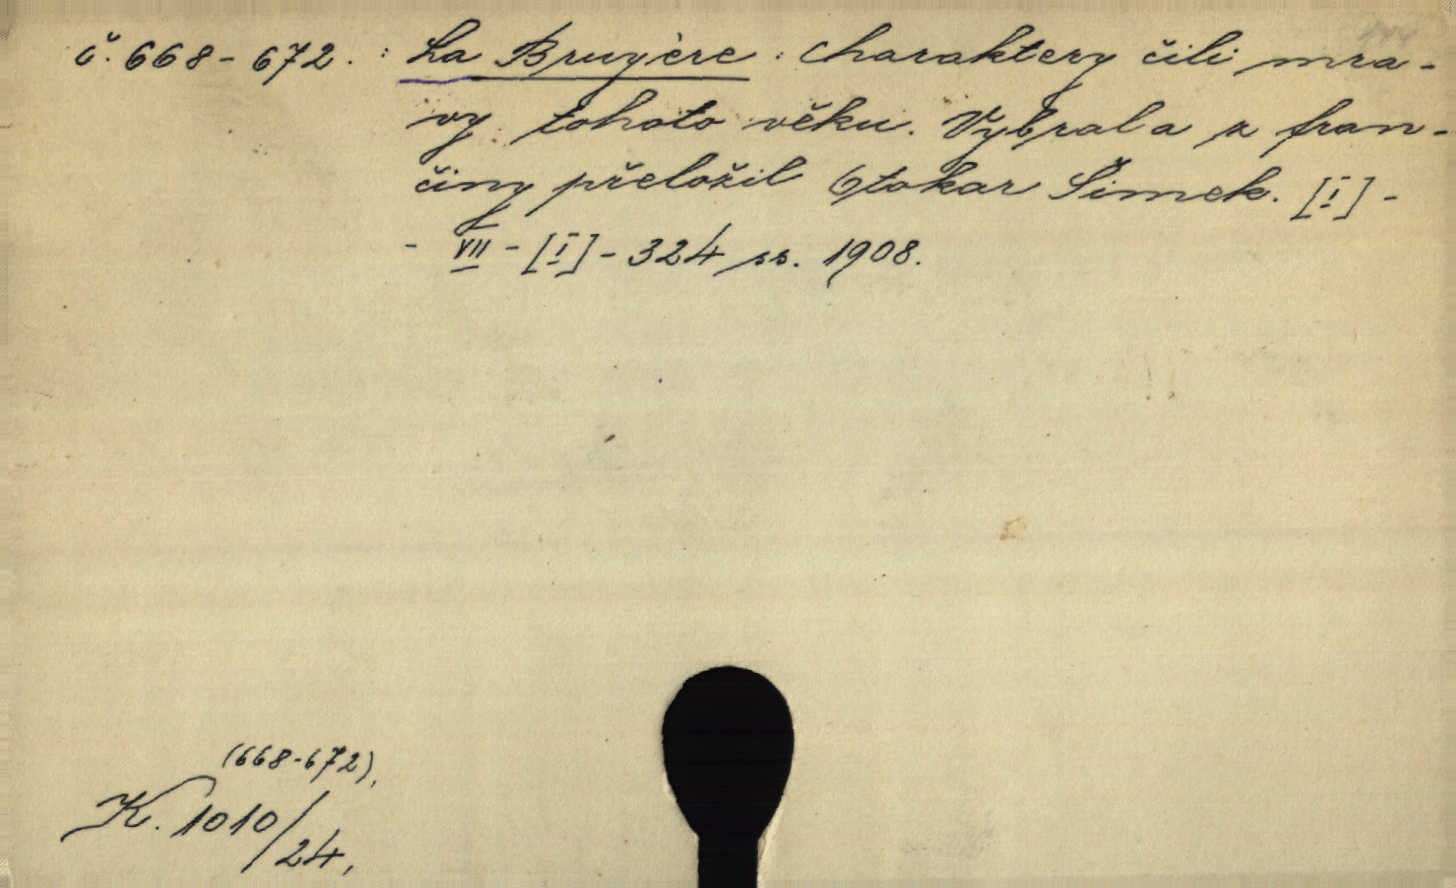 č. 668-672. : La Bruyère : Charaktery čili mra-
vy tohoto věku. Vybral a z fran-
činy přeložil Otokar Šimek. [I] -
- VII - [I] - 324 ss. 1908.
(668-672),
K. 1010/24,